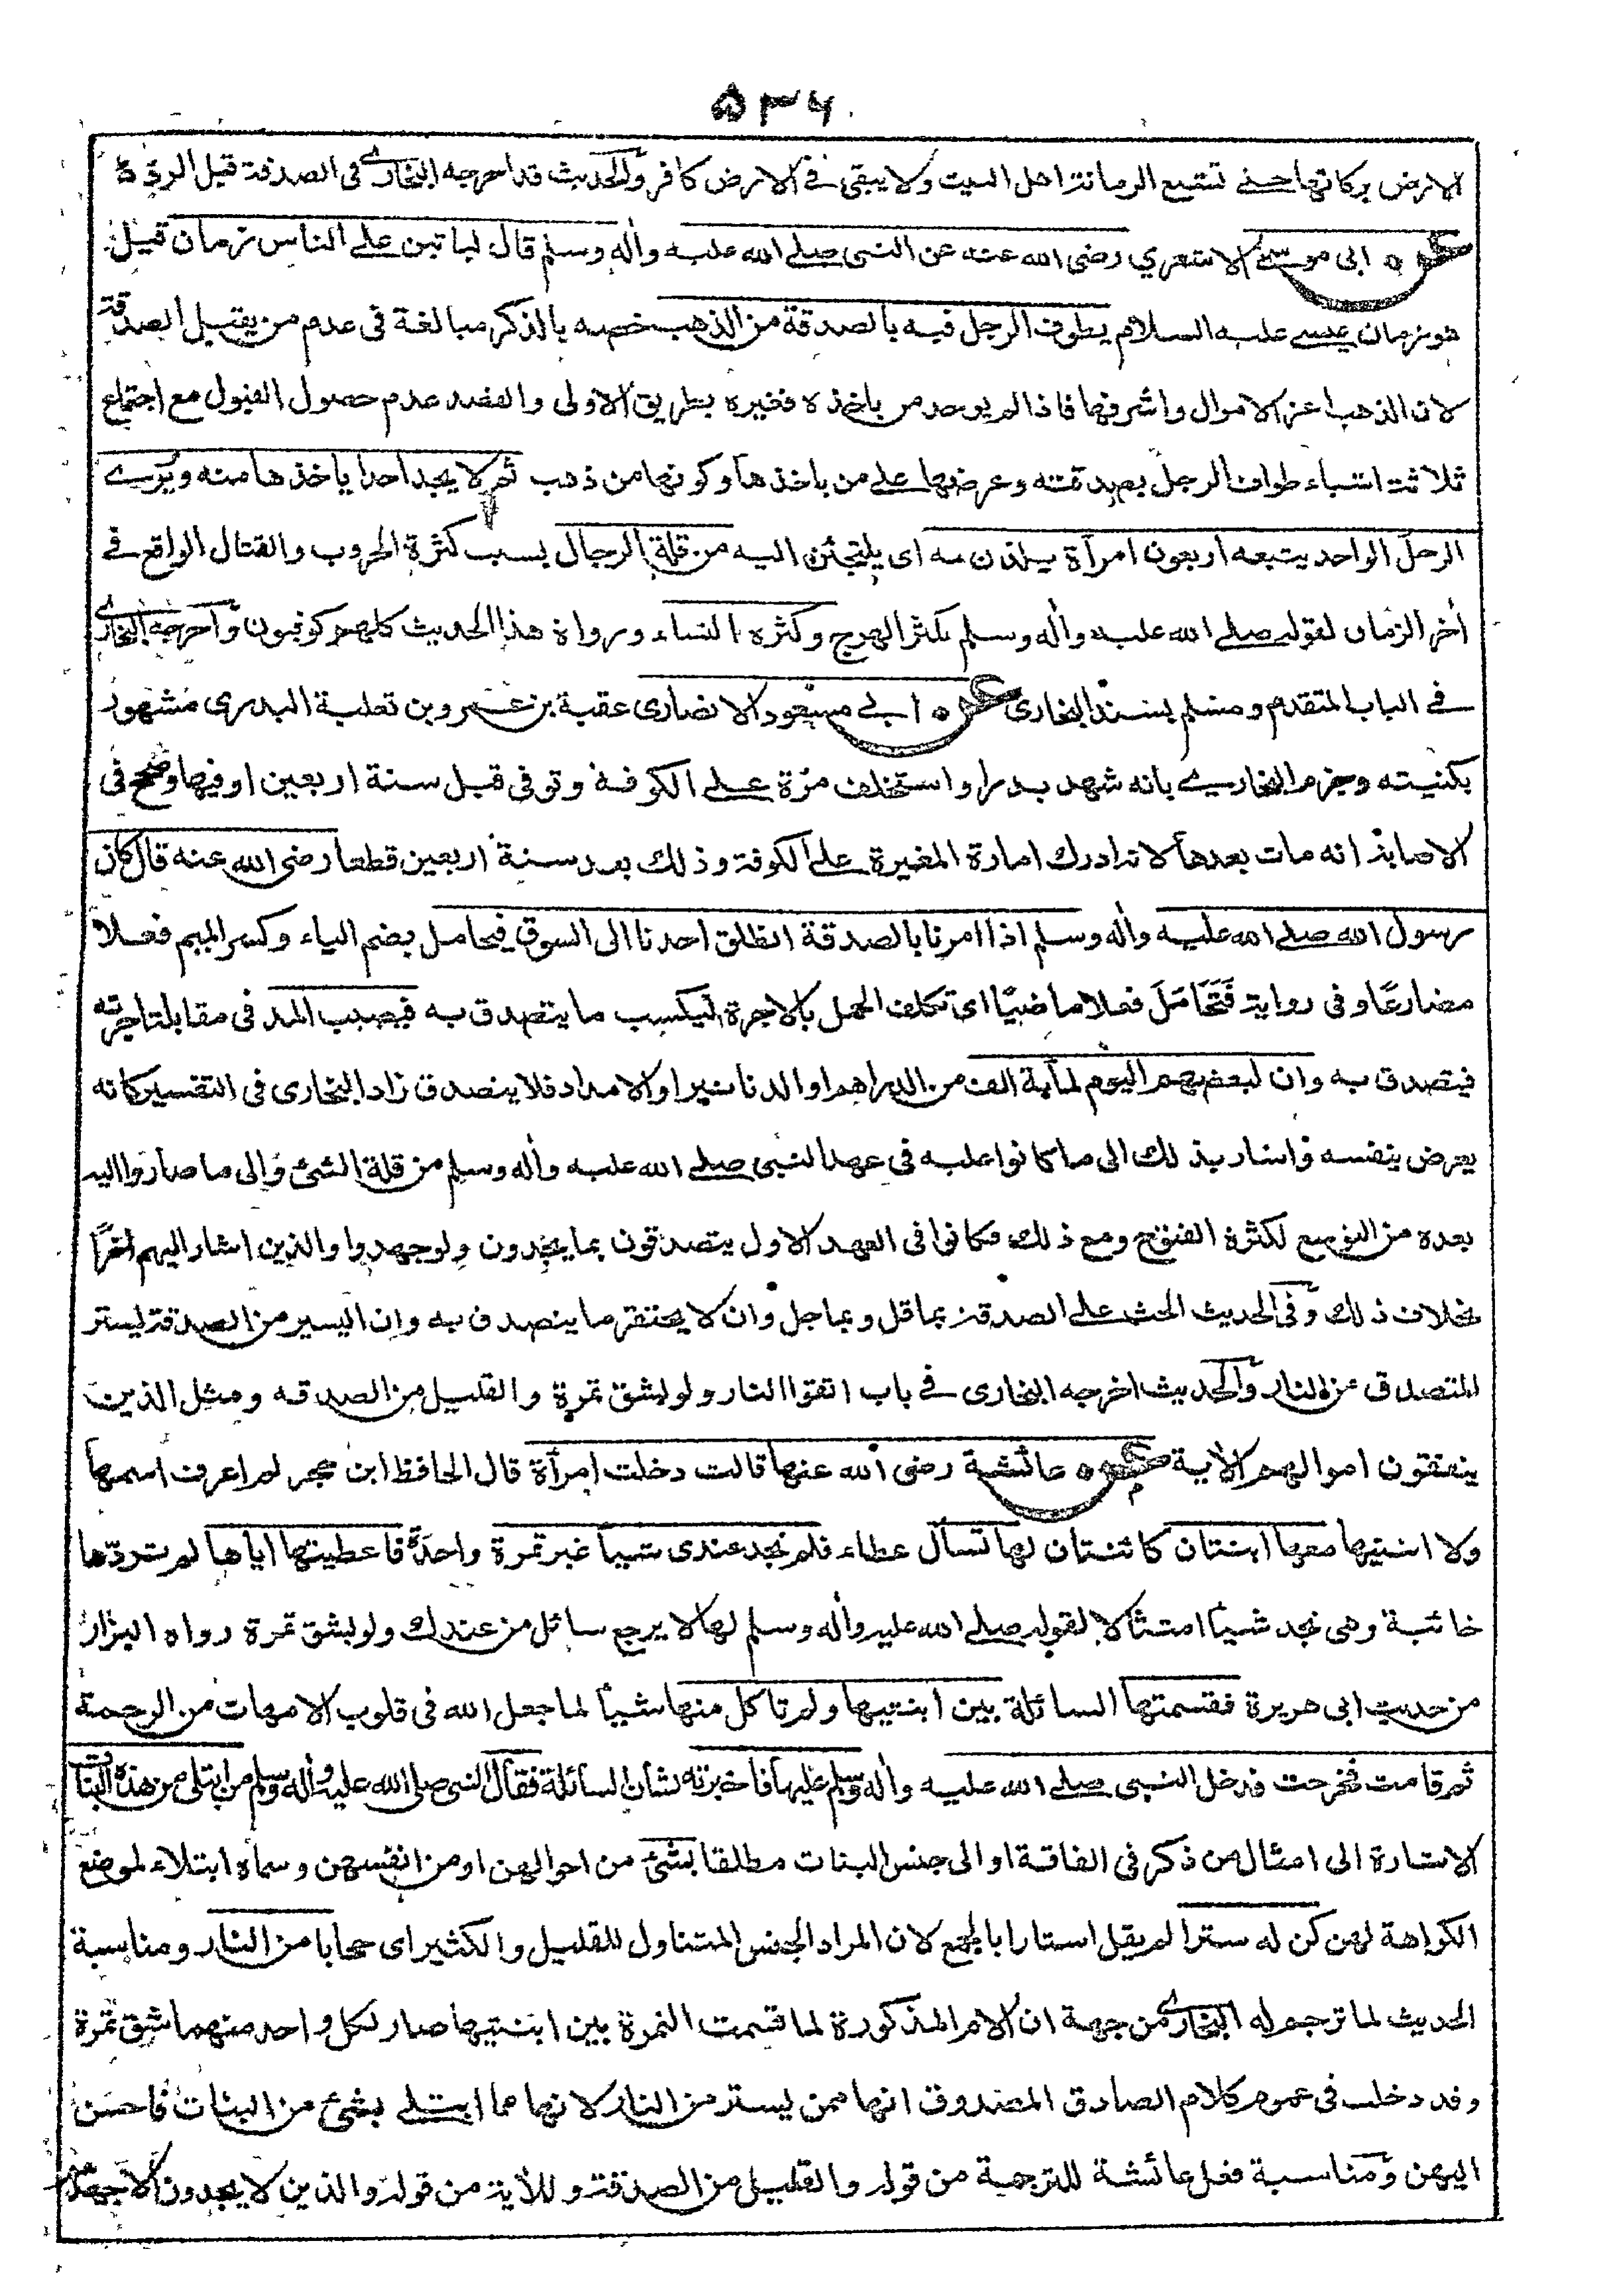 ٥٣٦
الارض بركاتها حتى تشبع الرمانة اهل البيت ولا يبقى فى الارض كافر والحديث قد اخرجه البخارى فى الصدقة قبل الرد
عن ابى موسى الاشعري رضى الله عنه عن النبى صلى الله عليه وأله وسلم قال لياتين على الناس زمان قيل
هو زمان عيسى عليه السلام يطوف الرجل فيه بالصدقة من الذهب خصه بالذكر مبالغة فى عدم من يقبل الصدقة
لان الذهب اعز الاموال واشرفها فاذا لم يوجد من ياخذه فغيره بطريق الاولى والقصد عدم حصول القبول مع اجتماع
ثلاثة اشياء طواف الرجل بصدقته وعرضها على من ياخذها وكونها من ذهب ثم لا يجد احدا ياخذها منه ويرى
الرجل الواحد يتبعه اربعون امرأة يلذن به اى يلتجئن اليه من قلة الرجال بسبب كثرة الحروب والقتال الواقع فى
أخر الزمان لقوله صلى الله عليه وأله وسلم يكثر الهرج وكثرة النساء ورواة هذا الحديث كلهم كوفيون واخرجه البخارى
فى الباب المتقدم ومسلم بسند البخارى عن ابى مسعود الانصارى عقبة بن عمرو بن ثعلبة البدرى مشهور
بكنيته وجزم البخارى بانه شهد بدرا واستخلف مرّة على الكوفة وتوفى قبل سنة اربعين او فيها وصحح فى
الاصابة انه مات بعدها لانه ادرك امارة المغيرة على الكوفة وذلك بعد سنة اربعين قطعا رضى الله عنه قال كان
رسول الله صلى الله عليه وأله وسلم اذا امرنا بالصدقة انطلق احدنا الى السوق فيحامل بضم الياء وكسر الميم فعلا
مضارعًا وفى رواية فَتَحَامَلَ فعلا ماضيًا اى تكلف الحمل بالاجرة ليكسب ما يتصدق به فيصيب المد فى مقابلة اجرته
فيتصدق به وان لبعضهم اليوم لمأية الف من الدراهم او الدنانير او الامداد فلا يتصدق زاد البخارى فى التفسير كانه
يعرض بنفسه واشار بذلك الى ما كانوا عليه فى عهد النبى صلى الله عليه وأله وسلم من قلة الشئ والى ما صاروا اليه
بعده من التوسع لكثرة الفتوح ومع ذلك فكانوا فى العهد الاول يتصدقون بما يجدون ولو جهدوا والذين اشار اليهم اخرًا
بخلاف ذلك وفى الحديث الحث على الصدقة بما قل وبما جل وان لا يحتقر ما يتصدق به وان اليسير من الصدقة يستر
المتصدق من النار والحديث اخرجه البخارى فى باب اتقوا النار ولو بشق تمرة والقليل من الصدقه ومثل الذين
ينفقون اموالهم الأية عن عائشة رضى الله عنها قالت دخلت امرأة قال الحافظ ابن حجر لم اعرف اسمها
ولا ابنتيها معها ابنتان كائنتان لها تسأل عطاء فلم تجد عندى شيأ غير تمرة واحدة فاعطيتها اياها لم تردّها
خائبة وهى تجد شيأ امتثالا لقوله صلى الله عليه وأله وسلم لها لا يرجع سائل من عندك ولو بشق تمرة رواه البزار
من حديث ابى هريرة فقسمتها السائلة بين ابنتيها ولم تاكل منها شيأ لما جعل الله فى قلوب الامهات من الرحمة
ثم قامت فخرجت فدخل النبى صلى الله عليه وأله وسلم عليها فاخبرته بشان السائلة فقال النبى صلى الله عليه وأله وسلم من ابتلى من هذه البنات
الاشارة الى امثال من ذكر فى الفاقة او الى جنس البنات مطلقا بشئ من احوالهن او من انفسهن وسماه ابتلاء لموضع
الكراهة لهن كن له سترا لم يقل استارا بالجمع لان المراد الجنس المتناول للقليل والكثير اى حجابا من النار ومناسبة
الحديث لما ترجم له البخارى من جهة ان الام المذكورة لما قسمت التمرة بين ابنتيها صار لكل واحد منهما شق تمرة
وقد دخلت فى عموم كلام الصادق المصدوق انها ممن يستر من النار لانها مما ابتلى بشئ من البنات فاحسن
اليهن ومناسبة فعل عائشة للترجمة من قوله والقليل من الصدقة وللأية من قوله والذين لا يجدون الا جهدهم